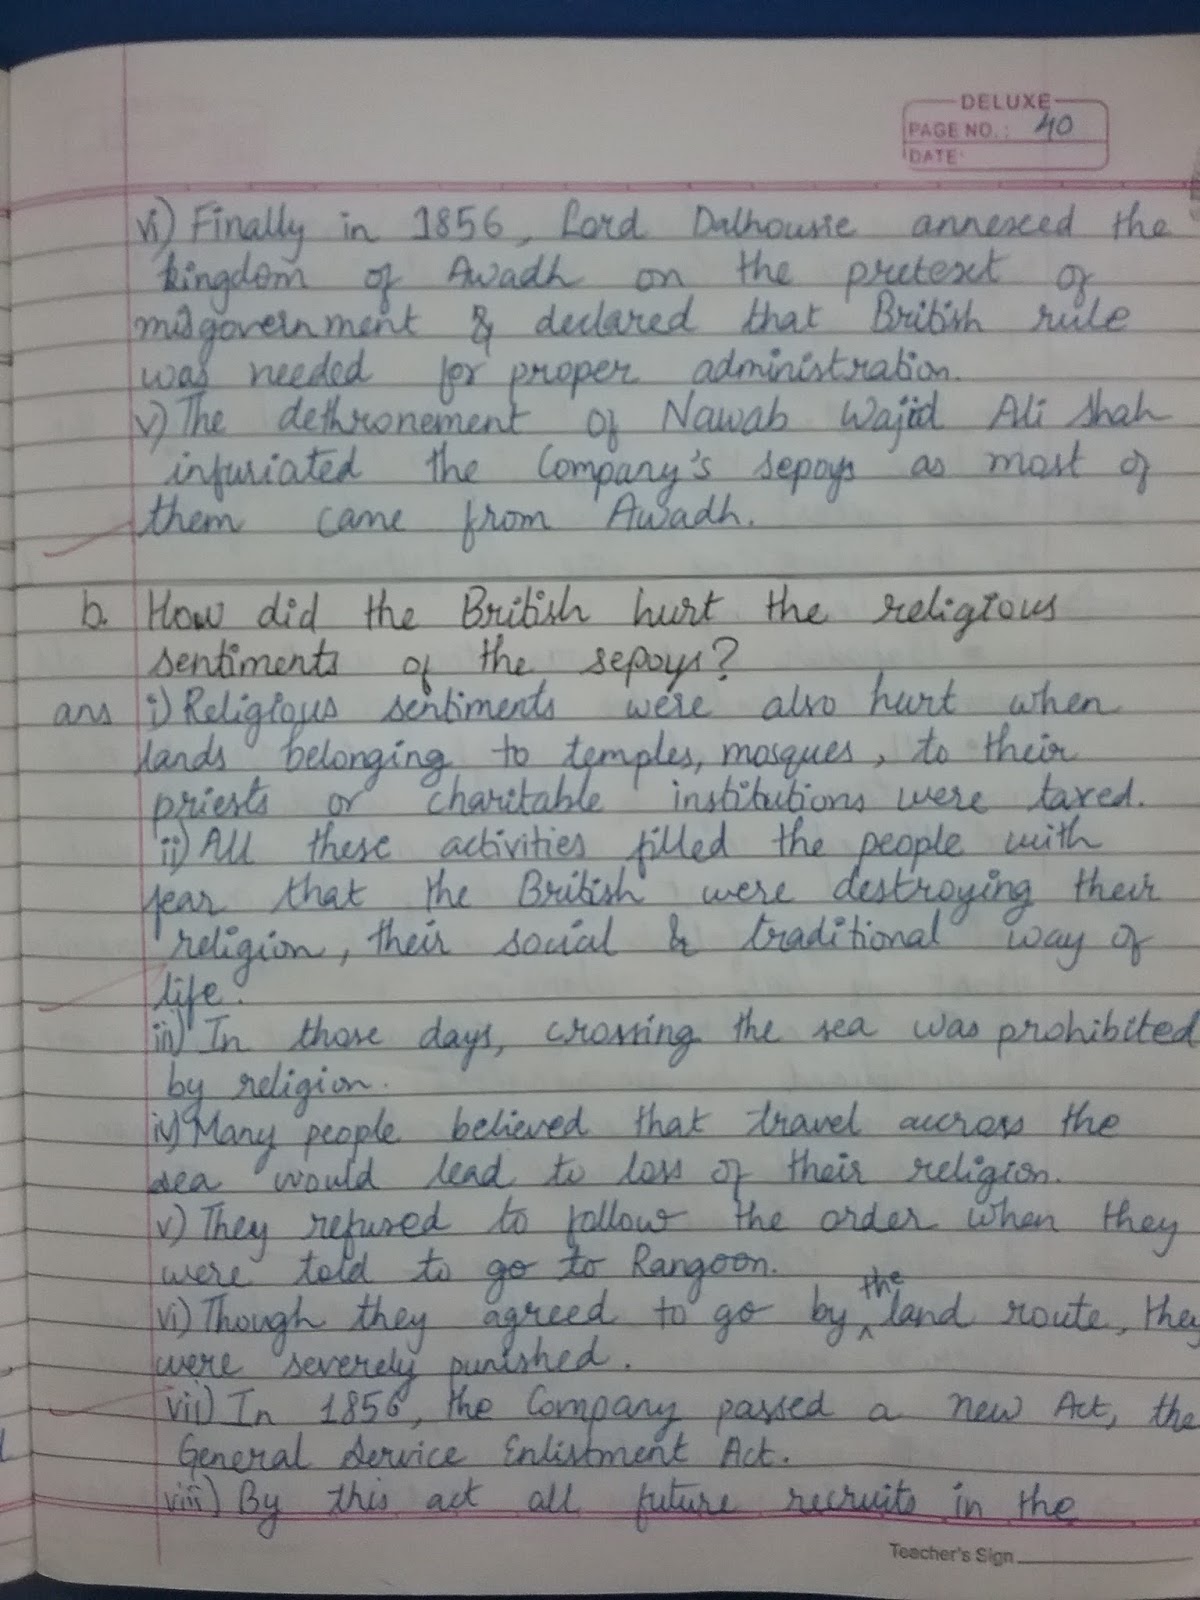 DELUXE
PAGE NO.: 40
DATE:
vi) Finally in 1856, Lord Dalhousie annexed the
kingdom of Awadh on the pretext of
misgovernment & declared that British rule
was needed for proper administration.
v) The dethronement of Nawab Wajid Ali Shah
infuriated the Company's sepoys as most of
them came from Awadh.
b. How did the British hurt the religious
sentiments of the sepoys?
ans i) Religious sentiments were also hurt when
lands belonging to temples, mosques, to their
priests or charitable institutions were taxed.
ii) All these activities filled the people with
fear that the British were destroying their
religion, their social & traditional way of
life.
iii) In those days, crossing the sea was prohibited
by religion.
iv) Many people believed that travel accross the
sea would lead to loss of their religion.
v) They refused to follow the order when they
were told to go to Rangoon.
vi) Though they agreed to go by the land route, they
were severely punished.
vii) In 1856, the Company passed a new Act, the
General Service Enlistment Act.
viii) By this act all future recruits in the
Teacher's Sign